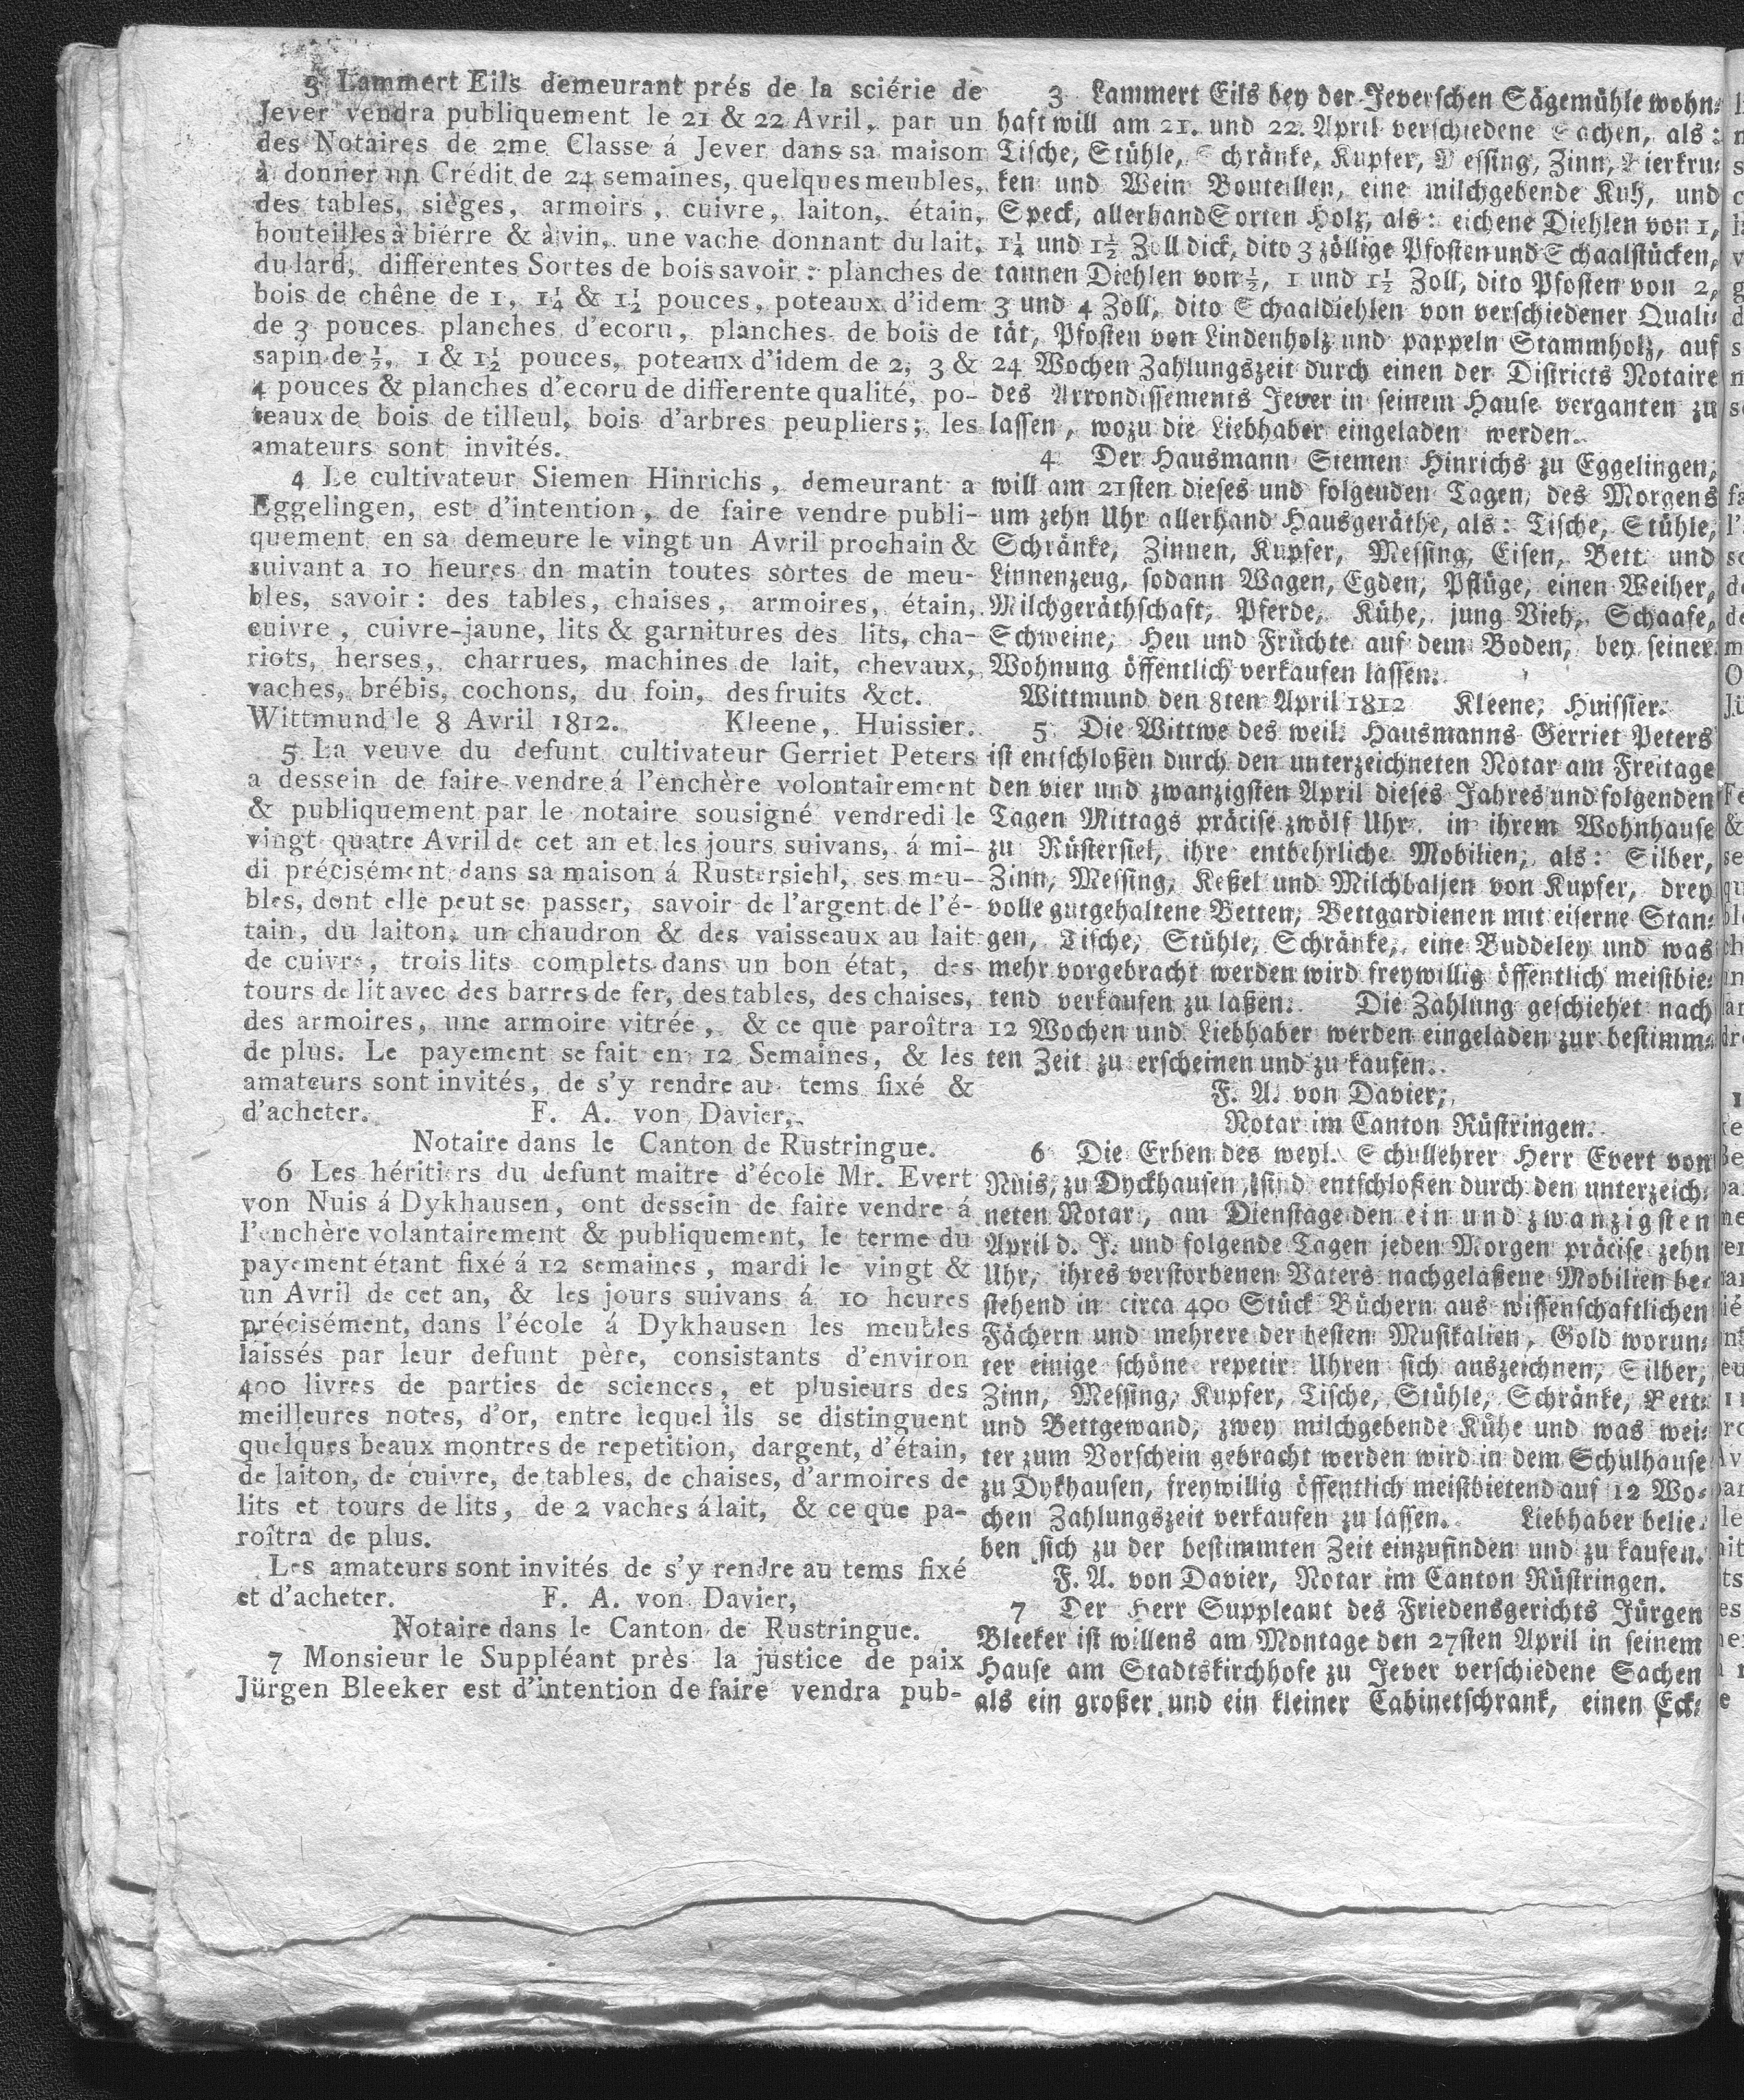 3 Lammert Eils demeurant prés de la sciérie de
Jever vendra publiquement le 21 & 22 Avril, par un
des Notaires de 2me Classe á Jever dans sa maison
à donner un Crédit de 24 semaines, quelques meubles,
des tables, sièges, armoirs, cuivre, laiton, étain,
bouteilles à biérre & à vin, une vache donnant du lait,
du lard, differentes Sortes de bois savoir: planches de
bois de chêne de 1, 1¼ & 1½ pouces, poteaux d'idem
de 3 pouces planches d'ecoru, planches de bois de
sapin de ½, 1 & 1½ pouces, poteaux d'idem de 2, 3 &
4 pouces & planches d'ecoru de differente qualité, po-
teaux de bois de tilleul, bois d'arbres peupliers; les
amateurs sont invités.
4 Le cultivateur Siemen Hinrichs, demeurant a
Eggelingen, est d'intention, de faire vendre publi-
quement en sa demeure le vingt un Avril prochain &
suivant a 10 heures dn matin toutes sortes de meu-
bles, savoir: des tables, chaises, armoires, étain,
cuivre, cuivre-jaune, lits & garnitures des lits, cha-
riots, herses, charrues, machines de lait, chevaux,
vaches, brébis, cochons, du foin, des fruits &ct.
Wittmund le 8 Avril 1812. Kleene, Huissier.
5 La veuve du defunt cultivateur Gerriet Peters
a dessein de faire vendre á l'enchère volontairement
& publiquement par le notaire sousigné vendredi le
vingt quatre Avril de cet an et les jours suivans, á mi-
di précisément dans sa maison á Rustersiehl, ses meu-
bles, dont elle peut se passer, savoir de l'argent de l'é-
tain, du laiton, un chaudron & des vaisseaux au lait
de cuivre, trois lits complets dans un bon état, des
tours de lit avec des barres de fer, des tables, des chaises,
des armoires, une armoire vitrée, & ce que paroîtra
de plus. Le payement se fait en 12 Semaines, & les
amateurs sont invités, de s'y rendre au tems fixé &
d'acheter. F. A. von Davier,
Notaire dans le Canton de Rustringue.
6 Les héritiers du defunt maitre d'école Mr. Evert
von Nuis á Dykhausen, ont dessein de faire vendre á
l'enchère volantairement & publiquement, le terme du
payement étant fixé á 12 semaines, mardi le vingt &
un Avril de cet an, & les jours suivans á 10 heures
précisément, dans l'école á Dykhausen les meubles
laissés par leur defunt père, consistants d'environ
400 livres de parties de sciences, et plusieurs des
meilleures notes, d'or, entre lequel ils se distinguent
quelques beaux montres de repetition, dargent, d'étain,
de laiton, de cuivre, de tables, de chaises, d'armoires de
lits et tours de lits, de 2 vaches á lait, & ce que pa-
roîtra de plus.
Les amateurs sont invités de s'y rendre au tems fixé
et d'acheter. F. A. von Davier,
Notaire dans le Canton de Rustringue.
7 Monsieur le Suppléant près la justice de paix
Jürgen Bleeker est d'intention de faire vendra pub-
3 Lammert Eils bey der Jeverschen Sägemühle wohn-
haft will am 21. und 22. April verschiedene Sachen, als:
Tische, Stühle, Schränke, Kupfer, Messing, Zinn, Bierkru-
ken und Wein Bouteillen, eine milchgebende Kuh, und
Speck, allerhand Sorten Holz, als: eichene Diehlen von 1,
1¼ und 1½ Zoll dick, dito 3 zöllige Pfosten und Schaalstücken,
tannen Diehlen von ½, 1 und 1½ Zoll, dito Pfosten von 2,
3 und 4 Zoll, dito Schaaldiehlen von verschiedener Quali-
tät, Pfosten von Lindenholz und pappeln Stammholz, auf
24 Wochen Zahlungszeit durch einen der Districts Notaire
des Arrondissements Jever in seinem Hause verganten zu
lassen, wozu die Liebhaber eingeladen werden.
4 Der Hausmann Siemen Hinrichs zu Eggelingen,
will am 21sten dieses und folgenden Tagen, des Morgens
um zehn Uhr allerhand Hausgeräthe, als: Tische, Stühle,
Schränke, Zinnen, Kupfer, Messing, Eisen, Bett und
Linnenzeug, sodann Wagen, Egden, Pflüge, einen Weiher,
Milchgeräthschaft, Pferde, Kühe, jung Vieh, Schaafe,
Schweine, Heu und Früchte auf dem Boden, bey seiner
Wohnung öffentlich verkaufen lassen.
Wittmund den 8ten April 1812 Kleene, Huissier.
5 Die Wittwe des weil. Hausmanns Gerriet Peters
ist entschloßen durch den unterzeichneten Notar am Freitage
den vier und zwanzigsten April dieses Jahres und folgenden
Tagen Mittags präcise zwölf Uhr. in ihrem Wohnhause
zu Rüstersiel, ihre entbehrliche Mobilien, als: Silber,
Zinn, Messing, Keßel und Milchbaljen von Kupfer, drey
volle gutgehaltene Betten, Bettgardienen mit eiserne Stan-
gen, Tische, Stühle, Schränke, eine Buddeley und was
mehr vorgebracht werden wird freywillig öffentlich meistbie-
tend verkaufen zu laßen. Die Zahlung geschiehet nach
12 Wochen und Liebhaber werden eingeladen zur bestimm-
ten Zeit zu erscheinen und zu kaufen.
F. A. von Davier,
Notar im Canton Rüstringen.
6 Die Erben des weyl. Schullehrer Herr Evert von
Nuis, zu Dyckhausen, sind entschloßen durch den unterzeich-
neten Notar, am Dienstage den ein und zwanzigsten
April d. J. und folgende Tagen jeden Morgen präcise zehn
Uhr, ihres verstorbenen Vaters nachgelaßene Mobilien be-
stehend in circa 400 Stück Büchern aus wissenschaftlichen
Fächern und mehrere der besten Musikalien, Gold worun-
ter einige schöne repetir Uhren sich auszeichnen, Silber,
Zinn, Messing, Kupfer, Tische, Stühle, Schränke, Bett-
und Bettgewand, zwey milchgebende Kühe und was wei-
ter zum Vorschein gebracht werden wird in dem Schulhause
zu Dykhausen, freywillig öffentlich meistbietend auf 12 Wo-
chen Zahlungszeit verkaufen zu lassen. Liebhaber belie-
ben sich zu der bestimmten Zeit einzufinden und zu kaufen.
F. A. von Davier, Notar im Canton Rüstringen.
7 Der Herr Suppleant des Friedensgerichts Jürgen
Bleeker ist willens am Montage den 27sten April in seinem
Hause am Stadtskirchhofe zu Jever verschiedene Sachen
als ein großer und ein kleiner Cabinetschrank, einen Eck-